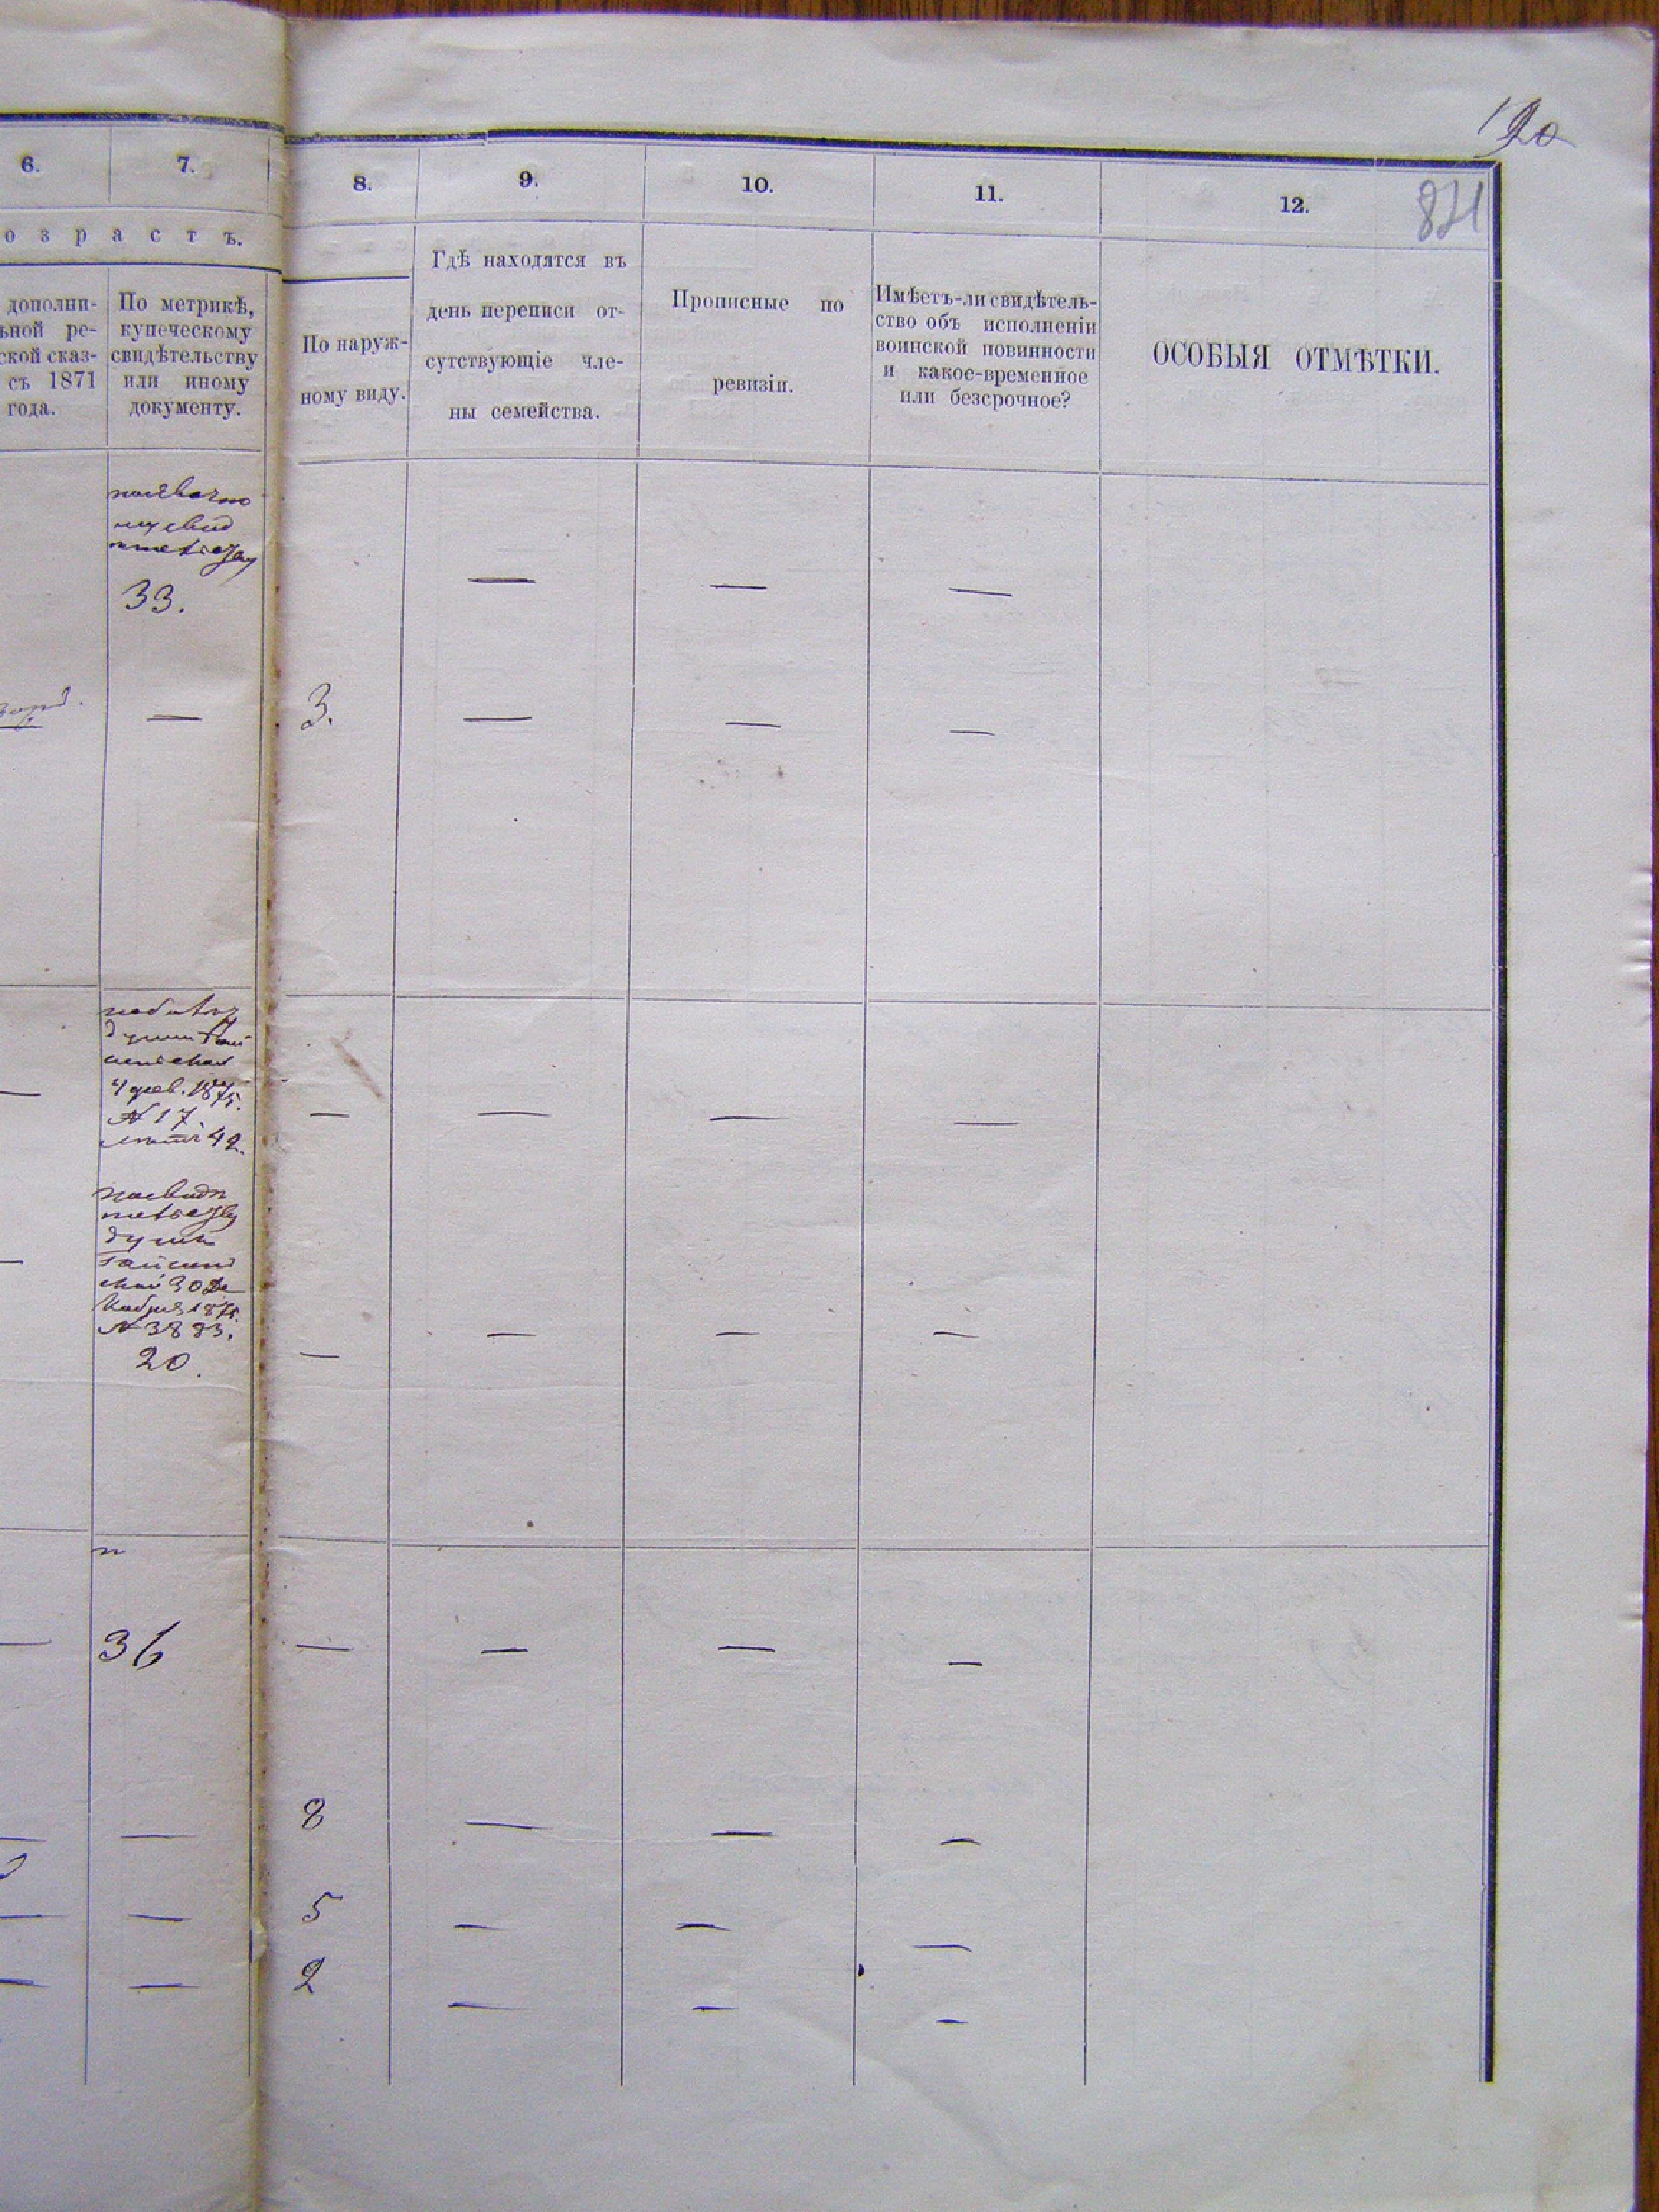 120
871
6.
7.
8.
9.
10.
11.
12.
озрастъ.
дополни-
ьной ре-
ской сказ-
съ 1871
года.
По метрикѣ,
купеческому
свидѣтельству
или иному
документу.
По наруж-
ному виду.
Гдѣ находятся въ
день переписи от-
сутствующіе чле-
ны семейства.
Прописные по
ревизіи.
Имѣетъ-ли свидѣтель-
ство объ исполненіи
воинской повинности
и какое-временное
или безсрочное?
ОСОБЫЯ ОТМѢТКИ.
33.
—
—
—
—
3.
—
—
—
думы
1875.
№ 17.
42.
—
—
—
—
—
думы
30 Де
кабря 1875.
№ 3883.
20.
—
—
—
—
—
—
36
—
—
—
—
—
—
8
—
—
—
—
—
5
—
—
—
—
—
2
—
—
—